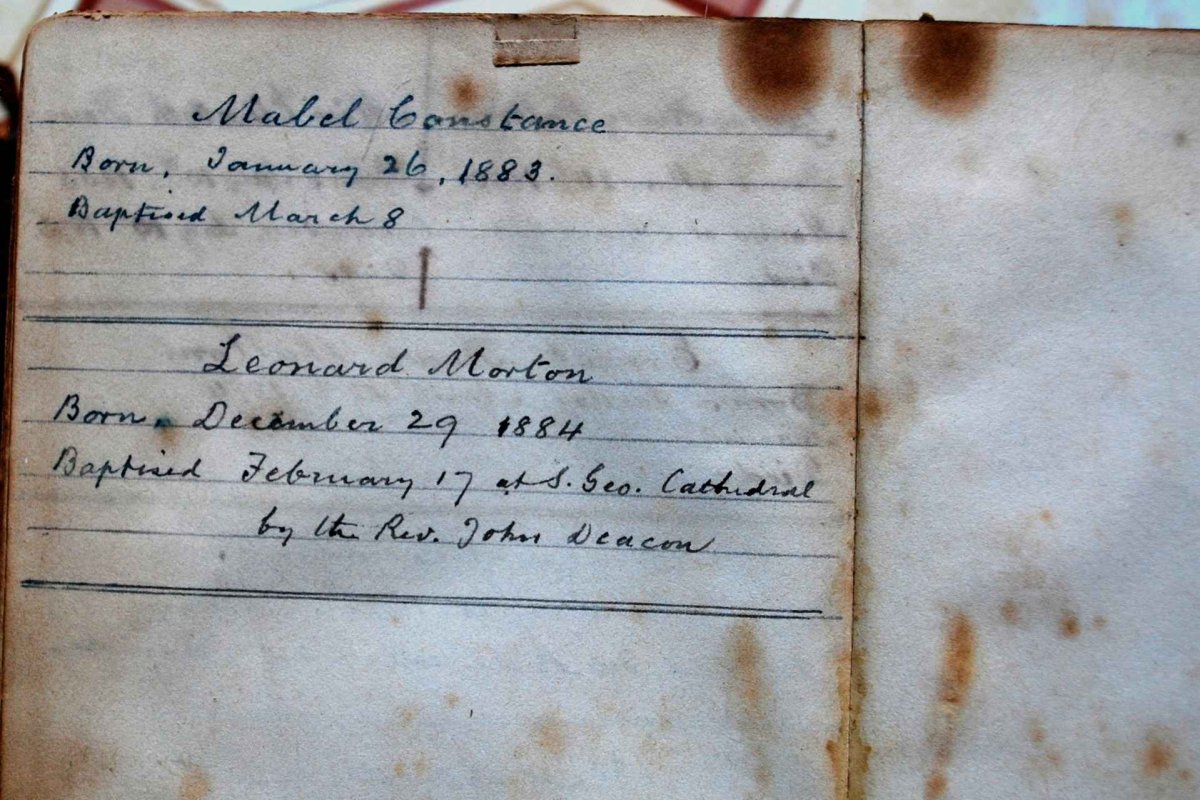 Mabel Constance
Born, January 26, 1883.
Baptised March 8
Leonard Morton
Born. December 29 1884
Baptised February 17 at S. Geo. Cathedral
by the Rev. John Deacon